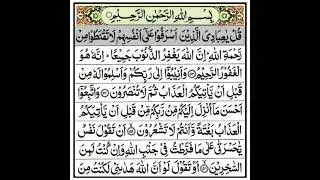 بِسْمِ اللهِ الرَّحْمٰنِ الرَّحِيْمِ
قُلْ يٰعِبَادِيَ الَّذِيْنَ اَسْرَفُوْا عَلٰٓى اَنْفُسِهِمْ لَا تَقْنَطُوْا مِنْ
رَّحْمَةِ اللهِ ؕ اِنَّ اللهَ يَغْفِرُ الذُّنُوْبَ جَمِيْعًا ؕ اِنَّهٗ هُوَ
الْغَفُوْرُ الرَّحِيْمُ ۝ وَاَنِيْبُوْٓا اِلٰى رَبِّكُمْ وَاَسْلِمُوْا لَهٗ مِنْ
قَبْلِ اَنْ يَّاْتِيَكُمُ الْعَذَابُ ثُمَّ لَا تُنْصَرُوْنَ ۝ وَاتَّبِعُوْٓا
اَحْسَنَ مَآ اُنْزِلَ اِلَيْكُمْ مِّنْ رَّبِّكُمْ مِّنْ قَبْلِ اَنْ يَّاْتِيَكُمُ
الْعَذَابُ بَغْتَةً وَّاَنْتُمْ لَا تَشْعُرُوْنَ ۝ اَنْ تَقُوْلَ نَفْسٌ
يّٰحَسْرَتٰى عَلٰى مَا فَرَّطْتُّ فِيْ جَنْۢبِ اللهِ وَاِنْ كُنْتُ لَمِنَ
السّٰخِرِيْنَ ۝ اَوْ تَقُوْلَ لَوْ اَنَّ اللهَ هَدٰىنِيْ لَكُنْتُ مِنَ